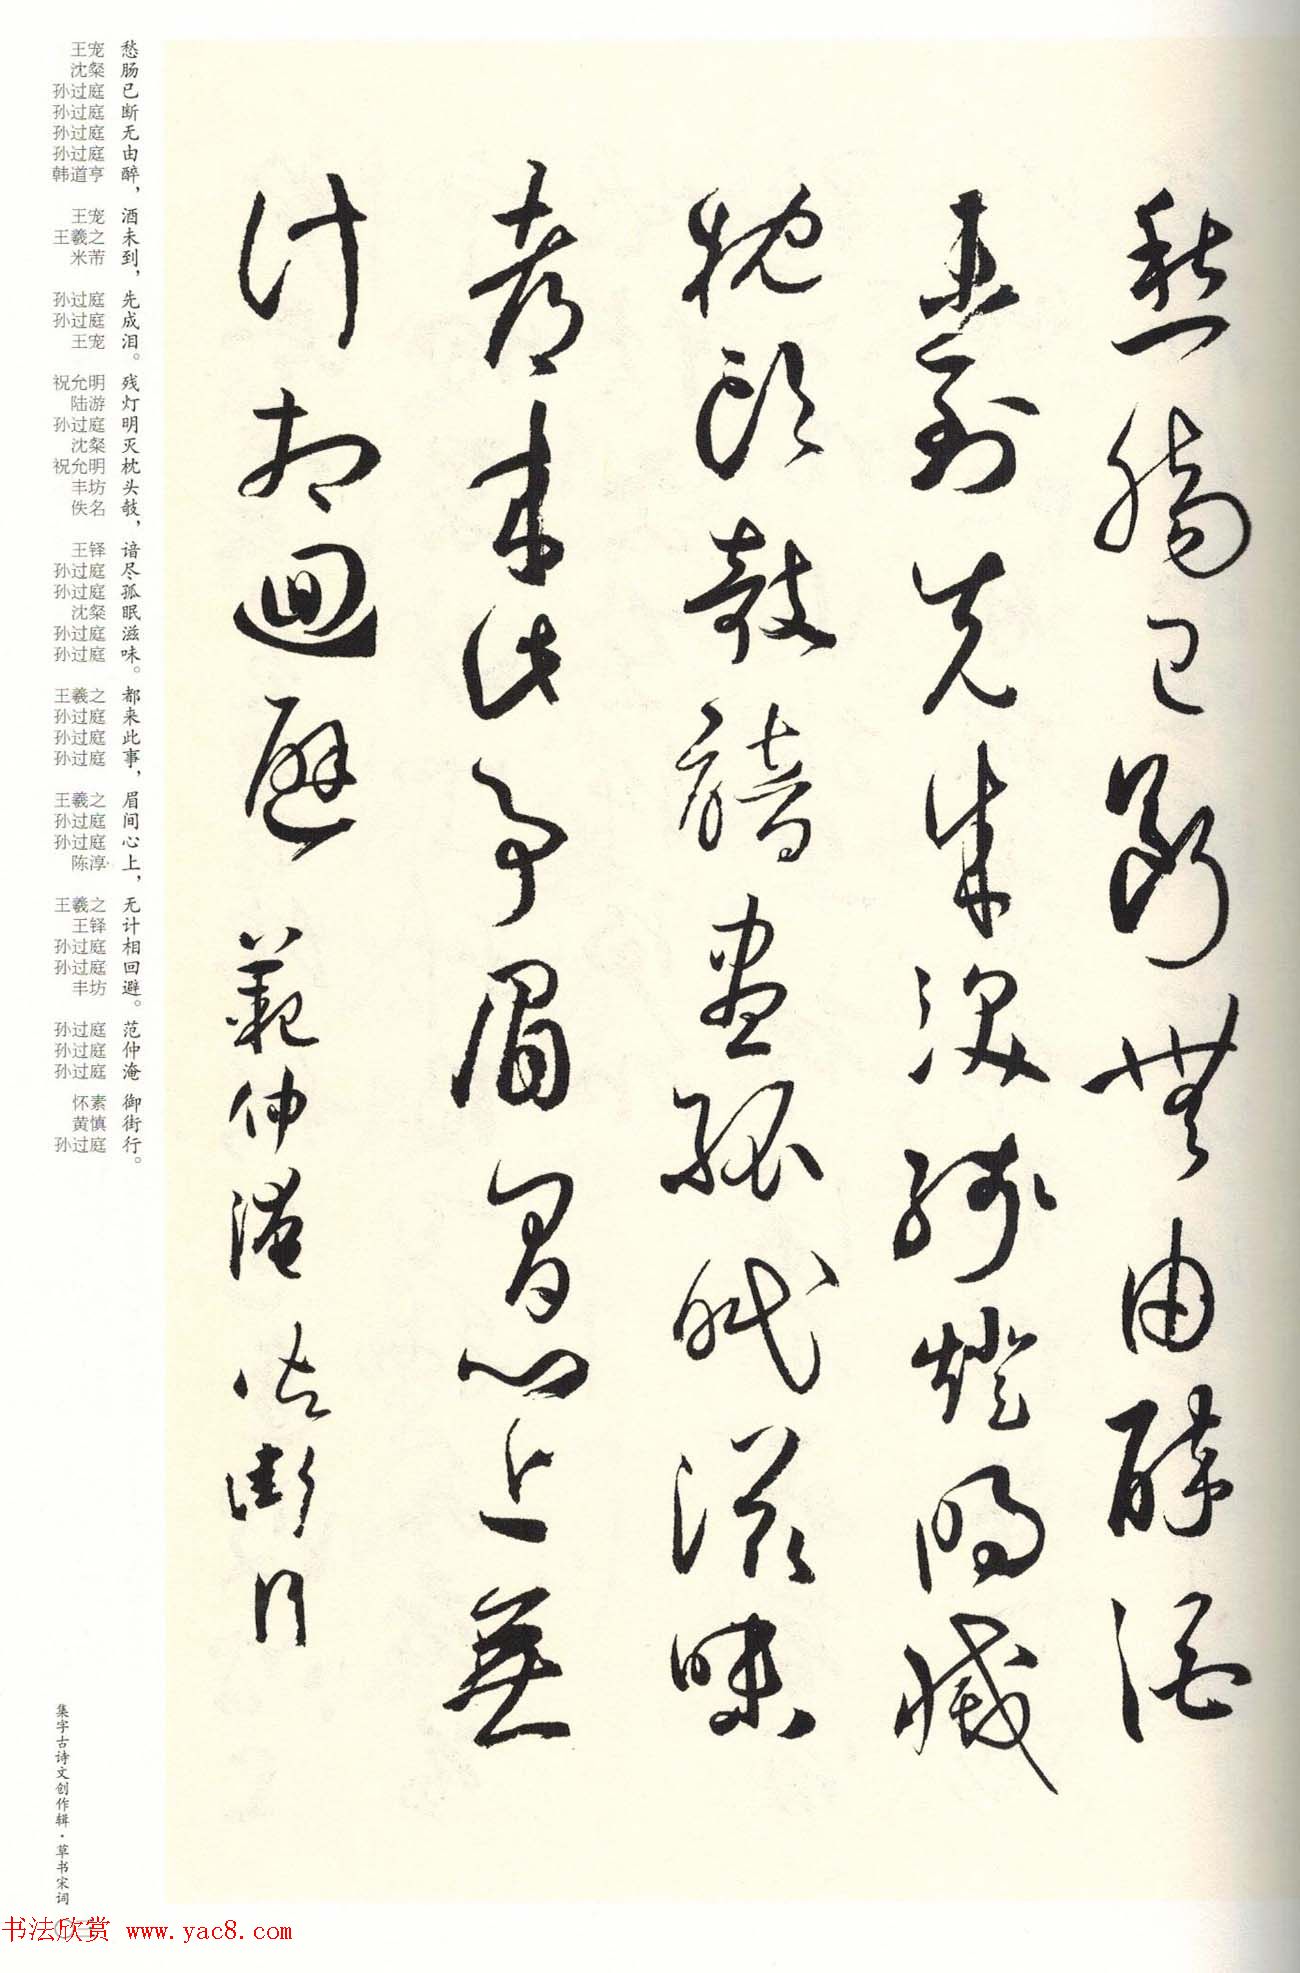 愁腸已斷無由醉酒
未到先成淚殘燈明滅
枕頭攲諳盡孤眠滋味
都來此事眉間心上無
計相迴避 範仲淹御街行
愁肠已断无由醉，酒未到，先成泪。残灯明灭枕头攲，谙尽孤眠滋味。都来此事，眉间心上，无计相回避。范仲淹 御街行。
王宠 沈粲 孙过庭 孙过庭 孙过庭 孙过庭 韩道亨 王宠 王羲之 米芾 孙过庭 孙过庭 王宠 祝允明 陆游 孙过庭 沈粲 祝允明 丰坊 佚名 王铎 孙过庭 孙过庭 沈粲 孙过庭 孙过庭 王羲之 孙过庭 孙过庭 孙过庭 王羲之 孙过庭 孙过庭 陈淳 王羲之 王铎 孙过庭 孙过庭 丰坊 孙过庭 孙过庭 孙过庭 怀素 黄慎 孙过庭
集字古诗文创作辑·草书宋词
书法欣赏 www.yac8.com